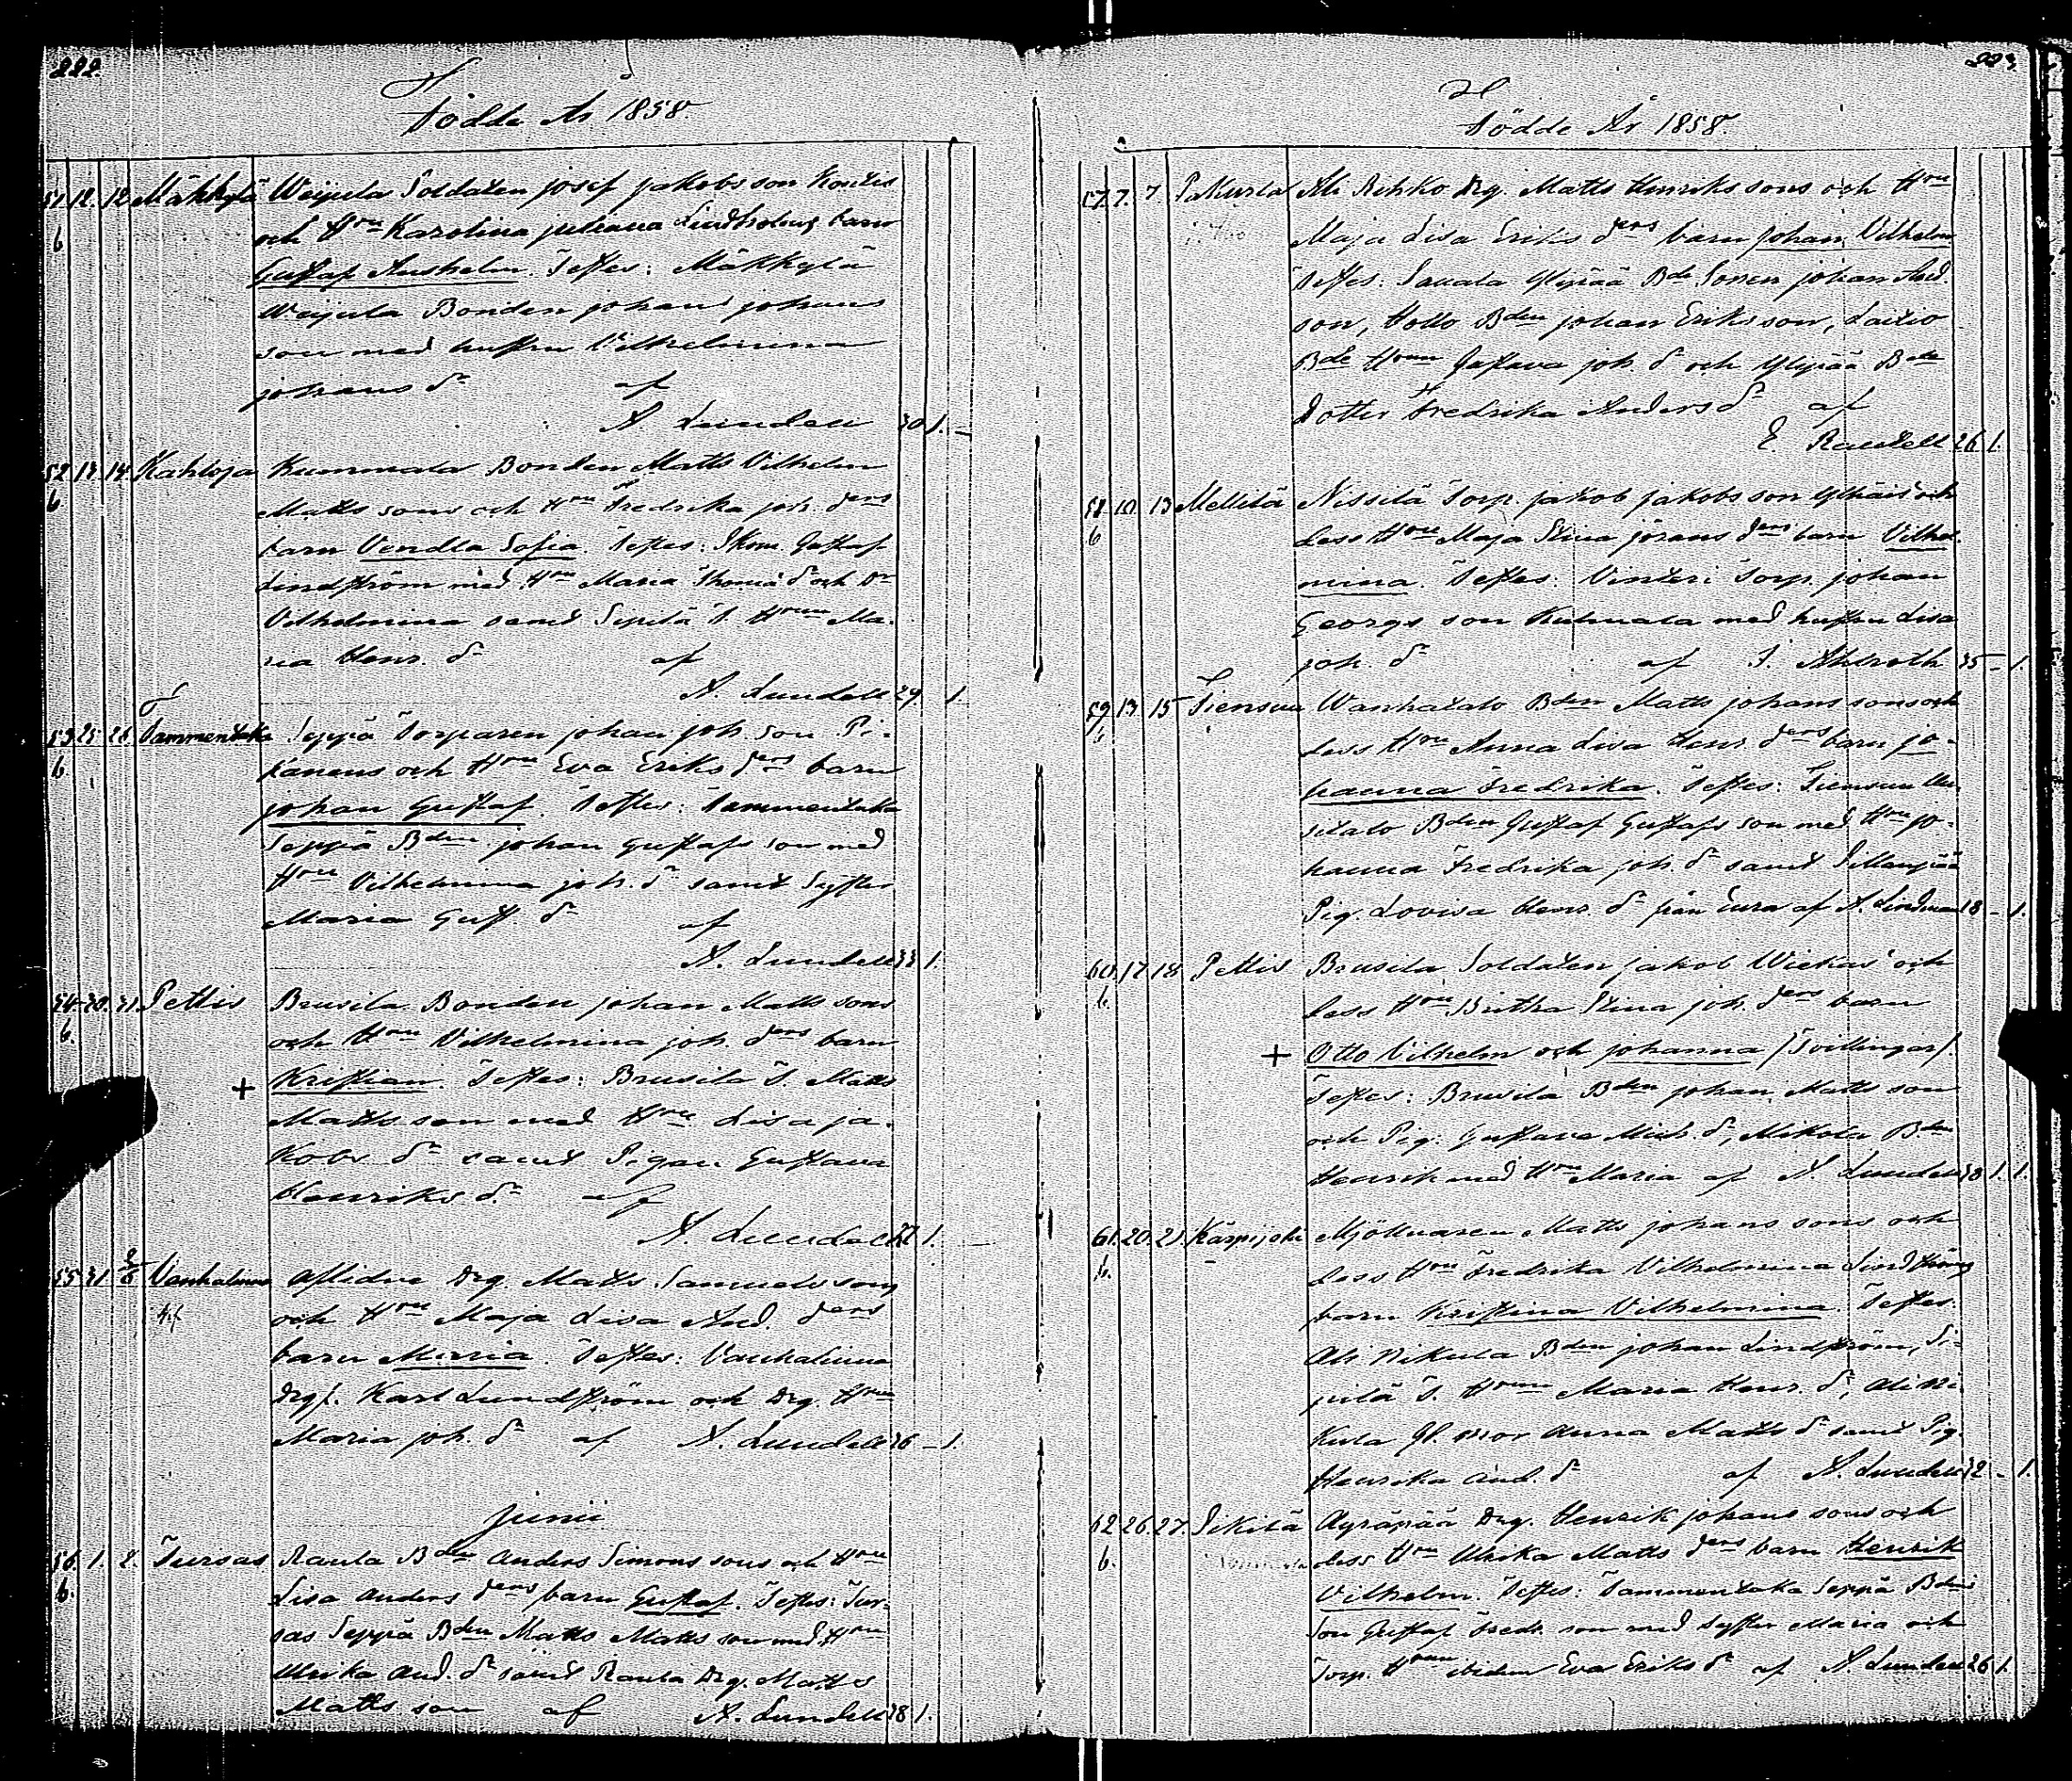 222.
Födde År 1858.
51. 12. 12. Mäkkylä Weijula Soldaten Josef Jakobs son
b och Hru Karolina Juliana Lindholms barn
Gustaf Anshelm. Testes: Mäkkylä
Weijula Bonden Johan Johans
son med hustru Vilhelmina
Johans dr af
A. Lundell 30 1. –
52 13. 14. Kahloja Kummala Bonden Matts Vilhelm
b Matts sons och Hru Fredrika Joh. ders
barn Vendla Sofia. Testes: Skom. Gustaf
Lindström med Hru Maria Thomæ dr och Dr
Vilhelmina samt Sipilä T. Hrun Ma-
ria Henr. dr af
A. Lundell 29. 1.
53 25. 26. Tammentaka Seppä Torparen Johan Joh. son Pi-
b. kanens och Hru Eva Eriks ders barn
Johan Gustaf. Testes: Tammentaka
Seppä Bden Johan Gustafs son med
Hru Vilhelmina Joh. dr samt Syster
Maria Gust. dr af
A. Lundell 33 1.
54. 30. 31. Pettis Brusila Bonden Johan Matts sons
b. och Hru Vilhelmina Joh. ders barn
+ Kristian. Testes: Brusila T. Matts
Matts son med Hru Lisa Ja-
kobs dr samt Pigan Gustava
Henriks dr af
A. Lundell 27 1. –
55 31. 2/6 Vanhalinna Aflidne Drg. Matts Samuels sons
och Hru Maja Lisa And. ders
barn Maria. Testes: Vanhalinna
Drg. Karl Lundström och Drg. Hrun
Maria Joh. dr af A. Lundell 26 – 1.
Junii
56. 1. 2. Tursas Raula Bden Anders Simons sons och Hru
b. Lisa Anders ders barn Gustaf. Testes: Tur-
sas Seppä Bden Matts Matts son med Hru
Ulrika And. dr samt Raula Drg. Matts
Matts son af A. Lundell 28 1.
223.
Födde År 1858.
57. 7. 7. Pakurla Ali Rihko Drg. Matts Henriks sons och Hru
Maja Lisa Eriks ders barn Johan Vilhelm
Testes: Sauala Ylipää Bde Sonen Johan And.
son, Hollo Bden Johan Eriks son, Laitio
Bde Hrun Gustava Joh. dr och Ylipää Bde
Dotter Fredrika Anders dr af
E. Rautell 26 1.
58. 10. 13 Mellilä Nissilä Torp. Jakob Jakobs son och
b dess Hru Maja Stina Jörans ders barn Vilhel-
mina. Testes: Vinteri Torp. Johan
Georgs son Kulmala med hustru Lisa
Joh. dr af J. Ahlroth 35 – 1.
59. 13. 15 Tiensuu Wanhatalo Bden Matts Johans sons och
b dess Hru Anna Lisa Henr. ders barn Jo-
hanna Fredrika. Testes: Tiensuu Uu-
sitalo Bden Gustaf Gustafs son med Hru Jo-
hanna Fredrika Joh. dr samt
Pig. Lovisa Henr. dr från Eura af A. Lindman 28 – 1.
60. 17. 18. Pettis Brusila Soldaten Jakob Wiekas och
b. dess Hru Britha Stina Joh. ders barn
+ Otto Vilhelm och Johanna /Tvillingar/.
Testes: Brusila Bden Johan Matts son
och Pig: Gustava Mich. dr, Mikola Bden
Henrik med Hru Maria af A. Lundell 38 1. 1.
61. 20. 21. Karpijoki Mjölnaren Matts Johans sons och
b. dess Hru Fredrika Vilhelmina Lindströms
barn Kristina Vilhelmina. Testes.
Ali Nikula Bden Johan Lindström, Si-
pilä T. Hrun Maria Henr. dr, Ali Ni-
kula Gl. Mor Anna Matts dr samt Pig.
Henrika And. dr af A. Lundell 32 – 1.
62 26. 27. Pikilä Ayräpää Drg. Henrik Johans sons och
b. dess Hru Ulrika Matts ders barn Henrik
Vilhelm. Testes: Tammentaka Seppä Bdens
Son Gustaf Fredr. son med Syster Maria och
Torp. Hrun ibidem Eva Eriks dr af A. Lundell 26 1.